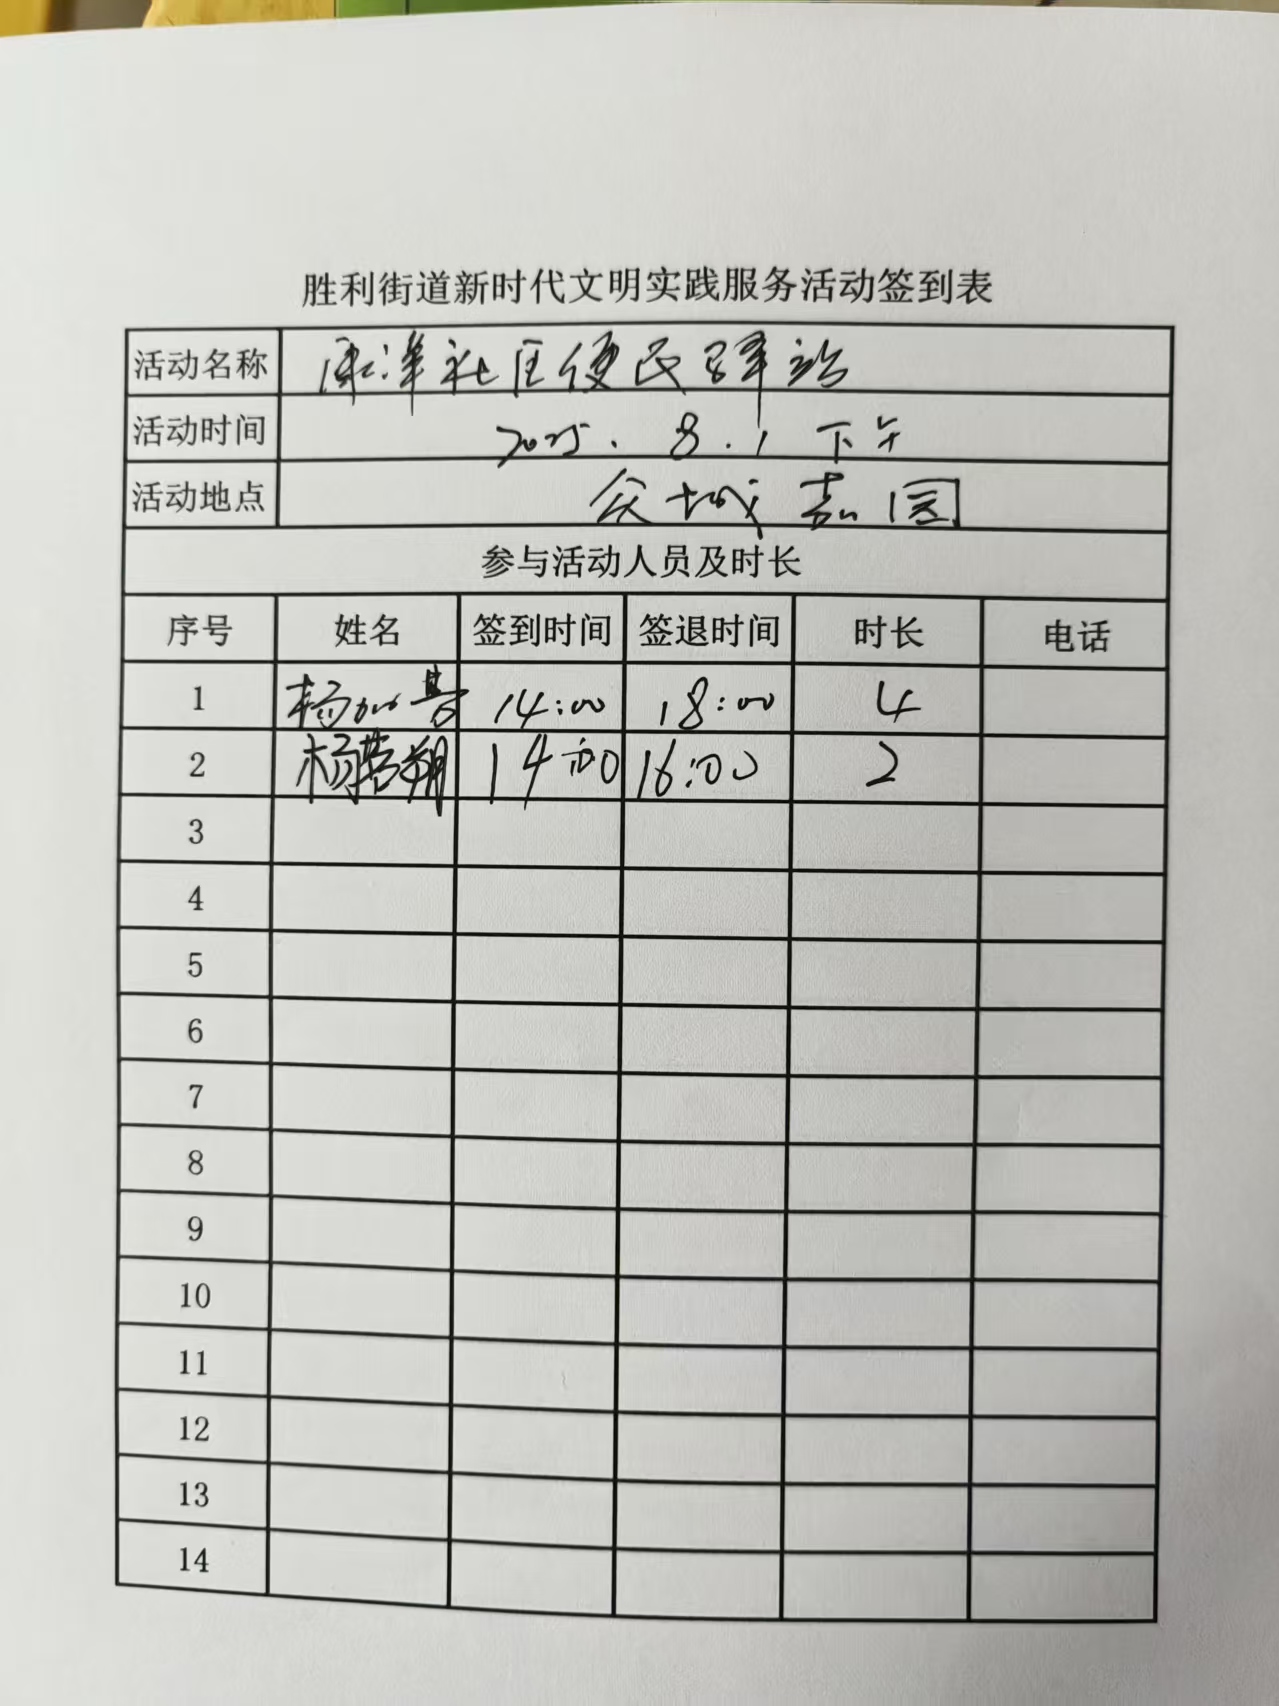 胜利街道新时代文明实践服务活动签到表
活动名称 康泽社区便民驿站
活动时间 2025.8.1下午
活动地点 众城嘉园
参与活动人员及时长
序号 姓名 签到时间 签退时间 时长 电话
1 杨 14:00 18:00 4
2 杨 朔 14:00 16:00 2
3
4
5
6
7
8
9
10
11
12
13
14